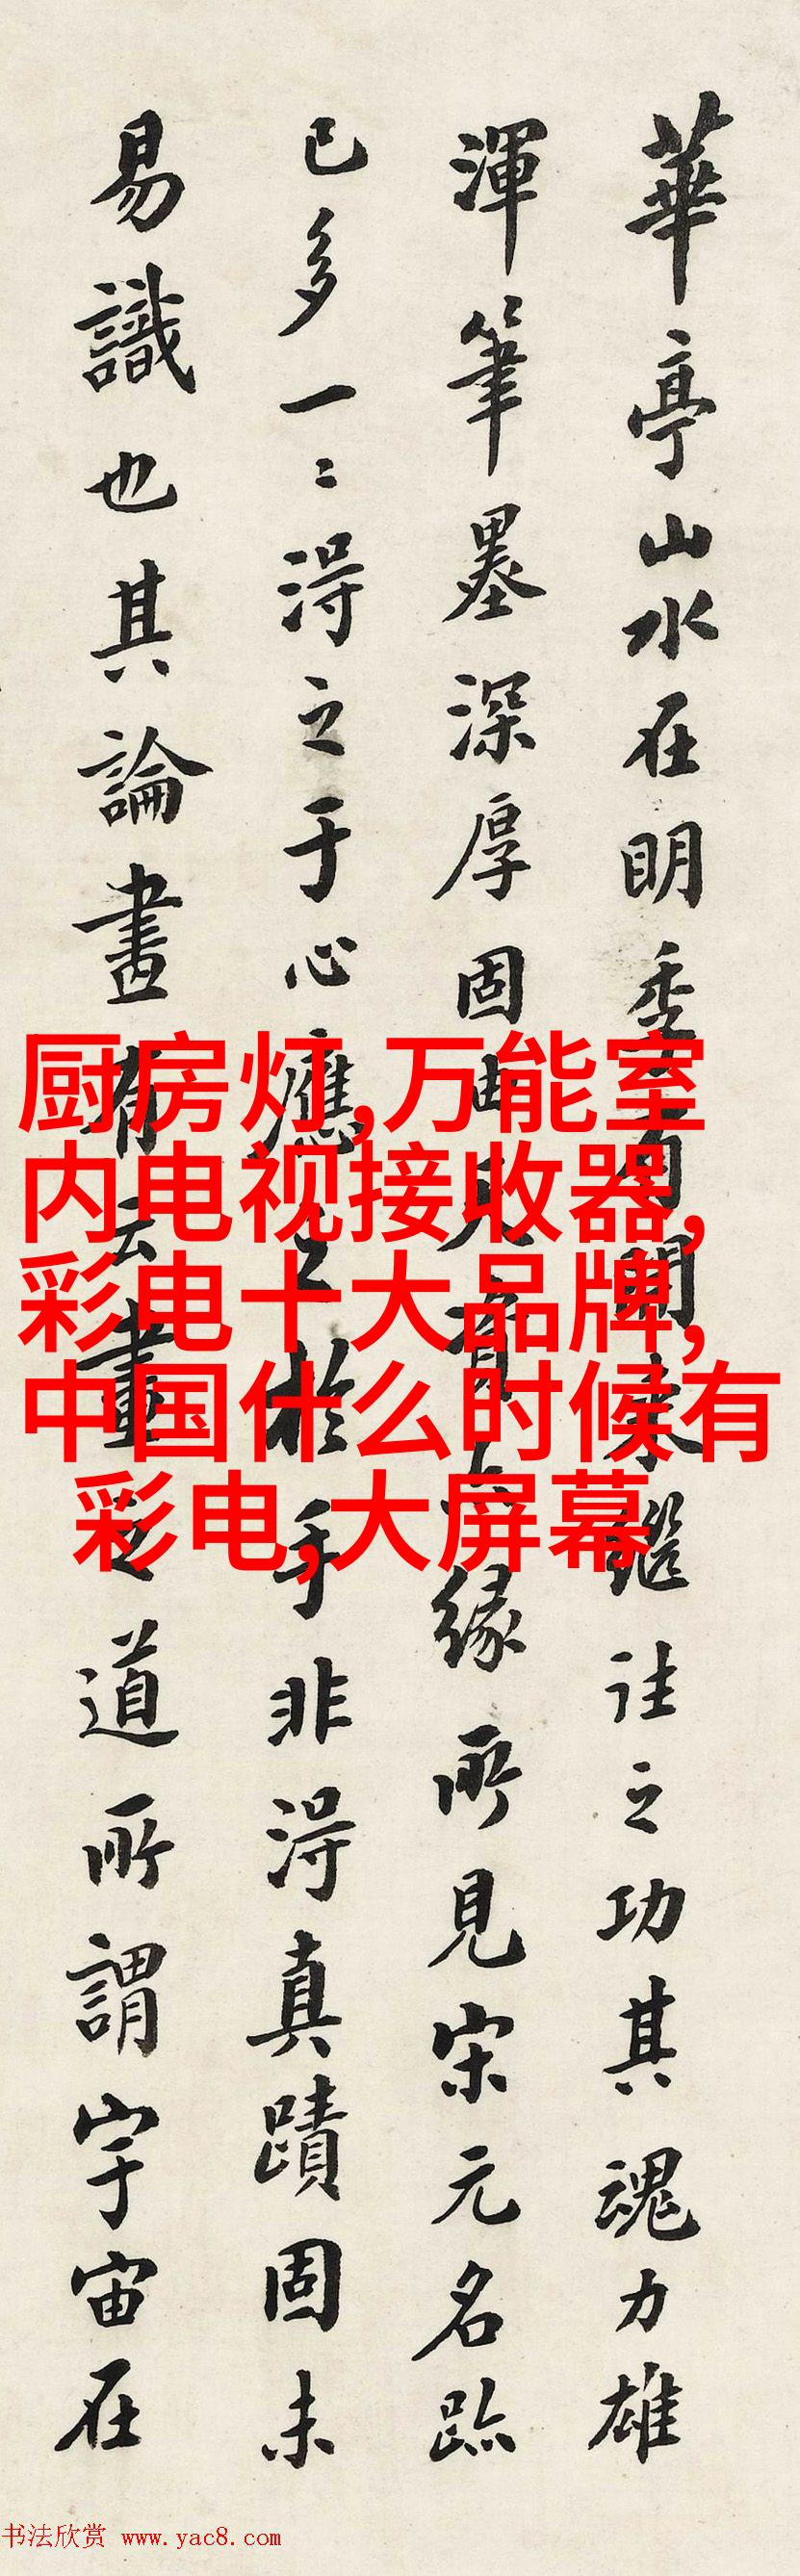 華亭山水在明季自開來繼往之功其魂力雄
渾筆墨深厚固由見資亦緣所見宋元名跡
已多一二得之于心應之於手非得真蹟固未
易識也其論畫有云畫之道所謂宇宙在
厨房灯,万能室
内电视接收器,
彩电十大品牌,
中国什么时候有
彩电,大屏幕
书法欣赏 www.yac8.com